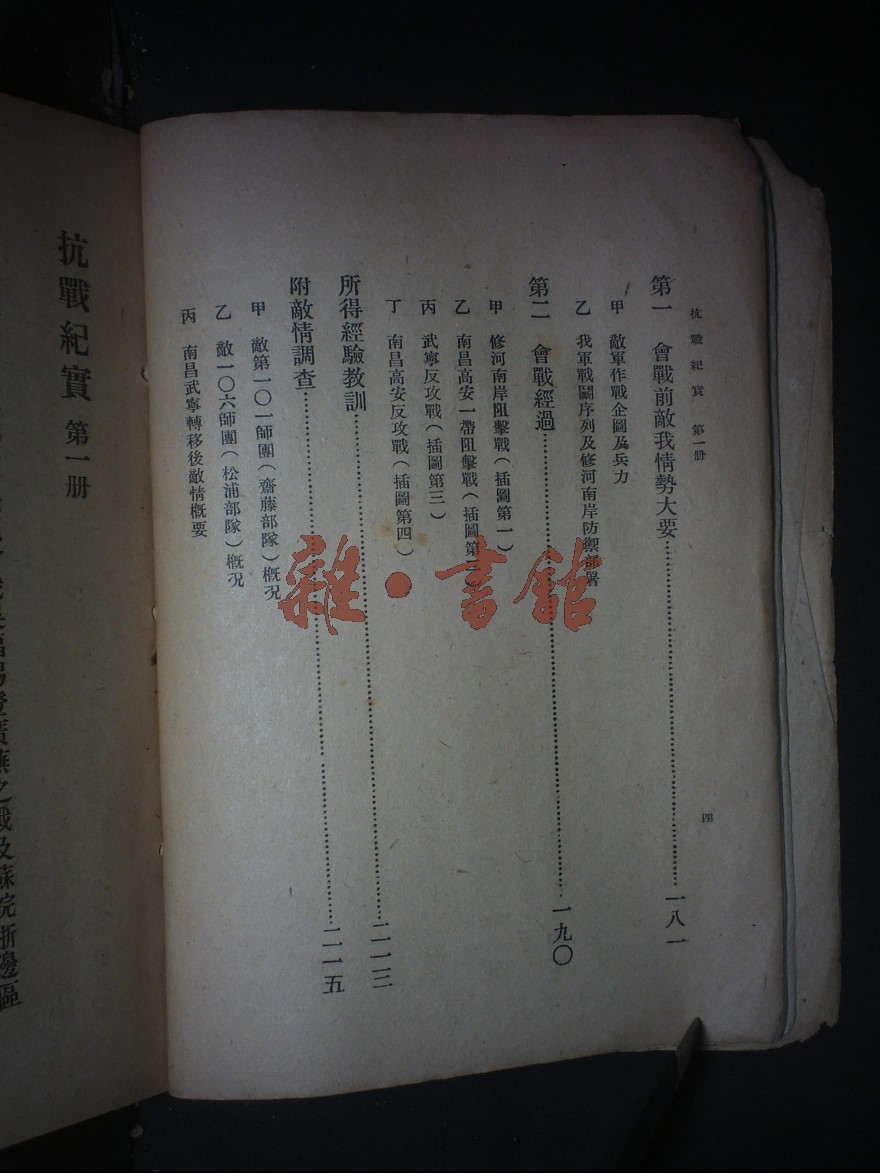 抗戰紀實 第一册
四
第一 會戰前敵我情勢大要……一八一
甲 敵軍作戰企圖及兵力
乙 我軍戰鬭序列及修河南岸防禦部署
第二 會戰經過……一九〇
甲 修河南岸阻擊戰(插圖第一)
乙 南昌高安一帶阻擊戰(插圖第二)
丙 武寧反攻戰(插圖第三)
丁 南昌高安反攻戰(插圖第四)
所得經驗教訓……二一三
附敵情調查……二一五
甲 敵第一〇一師團(齋藤部隊)概況
乙 敵一〇六師團(松浦部隊)概況
丙 南昌武寧轉移後敵情概要
抗戰紀實 第一册
之戰及蘇皖浙邊區
雜·書館